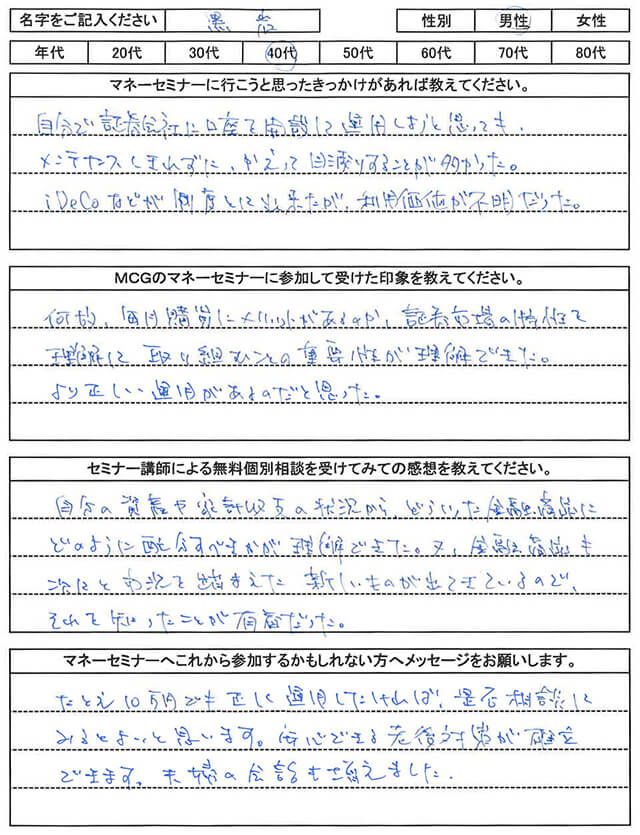 名字をご記入ください 黒岩 性別 男性 女性
年代 20代 30代 40代 50代 60代 70代 80代
マネーセミナーに行こうと思ったきっかけがあれば教えてください。
自分で証券会社に口座を開設して運用しようと思っても、
メンテナンスしきれずに、かえって目減りすることが多かった。
iDeCoなどが制度として出来たが、利用価値が不明だった。
MCGのマネーセミナーに参加して受けた印象を教えてください。
何故、毎月購買にメリットがあるのか、証券市場の特性を
理解して取り組むことの重要性が理解できた。
より正しい運用があるのだと思った。
セミナー講師による無料個別相談を受けてみての感想を教えてください。
自分の資産や家計収支の状況から、どういった金融商品に
どのように配分すべきかが理解できた。又、金融商品も
次々と市況を踏まえた新しいものが出てきているので、
それを知ったことが有益だった。
マネーセミナーへこれから参加するかもしれない方へメッセージをお願いします。
たとえ10万円でも正しく運用したければ、是非相談して
みるとよいと思います。安心できる老後対策が確立
できます。夫婦の会話も増えました。